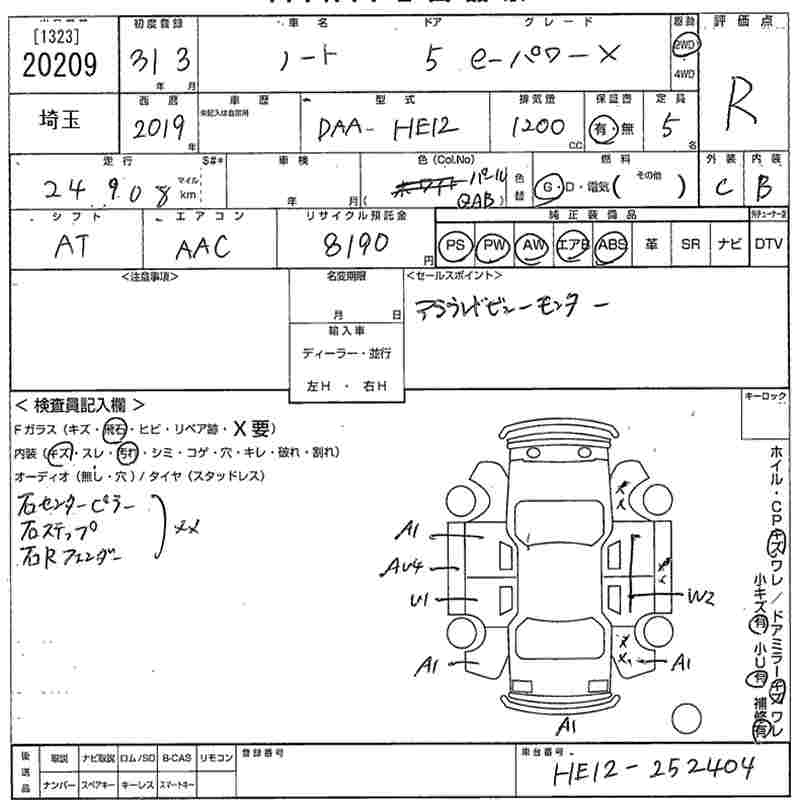 [1323]
20209
初度登録
31 3
年 月
車名
ノート
ドア
5
グレード
e-パワーX
駆動
2WD
4WD
評価点
R
埼玉
西暦
2019
年
車歴
未記入は自家用
型式
DAA- HE12
排気量
1200
CC
保証書
有・無
定員
5
名
走行
24 9 0 8
マイル
km
S#*
車検
年 月
色 (Col.No)
ホワイト パール
( QAB )
色替
燃料
G・D・電気( その他 )
外装
C
内装
B
シフト
AT
エアコン
AAC
リサイクル預託金
8190
円
純正装備品
PS PW AW エアB ABS 革 SR ナビ
DTV
<注意事項>
名変期限
月 日
輸入車
ディーラー・並行
左H ・ 右H
<セールスポイント>
アラウンドビューモニター
キーロック
< 検査員記入欄 >
Fガラス (キズ・飛石・ヒビ・リペア跡・X要)
内装 (キズ・スレ・汚れ・シミ・コゲ・穴・キレ・破れ・割れ)
オーディオ (無し・穴) / タイヤ (スタッドレス)
右センターピラー
右ステップ
右Rフェンダー
XX
A1
AU4
U1
A1
W2
A1
A1
ホイル・CPキズ・ワレ / ドアミラーキズ ワレ
小キズ有 小U有 補修有
後送品
取説 ナビ取説 ロム/SD B-CAS リモコン
ナンバー スペアキー キーレス スマートキー
登録番号
車台番号
HE12-252404